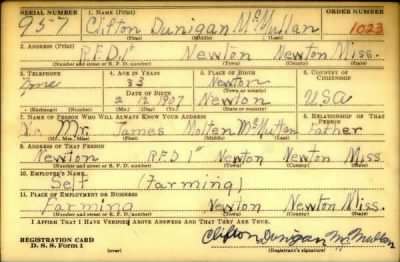 SERIAL NUMBER 1. NAME (Print) ORDER NUMBER
957 Clifton Dunigan McMullan 1023
(First) (Middle) (Last)
2. ADDRESS (Print)
R.F.D. 1 Newton Newton Miss.
(Number and street or R. F. D. number) (Town) (County) (State)
3. TELEPHONE 4. AGE IN YEARS 5. PLACE OF BIRTH 6. COUNTRY OF CITIZENSHIP
33 Newton
DATE OF BIRTH (Town or county)
2 12 1907 Miss. USA
(Exchange) (Number) (Mo.) (Day) (Yr.) (State or country)
7. NAME OF PERSON WHO WILL ALWAYS KNOW YOUR ADDRESS 8. RELATIONSHIP OF THAT PERSON
Mr. James Molten McMullan Father
(Mr., Mrs., Miss) (First) (Middle) (Last)
9. ADDRESS OF THAT PERSON
Newton R.F.D. 1 Newton Newton Miss
(Number and street or R. F. D. number) (Town) (County) (State)
10. EMPLOYER'S NAME
Self (Farming)
11. PLACE OF EMPLOYMENT OR BUSINESS
Farming Newton Newton Miss.
(Number and street or R. F. D. number) (Town) (County) (State)
I AFFIRM THAT I HAVE VERIFIED ABOVE ANSWERS AND THAT THEY ARE TRUE.
REGISTRATION CARD
D. S. S. Form 1 (over) Clifton Dunigan McMullan
(Registrant's signature)